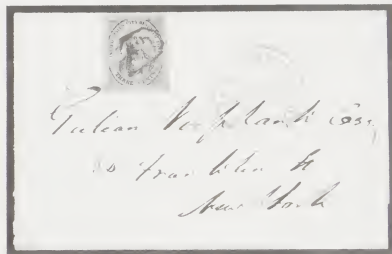 Gulian Verplanck Esq
Franklin St
New York